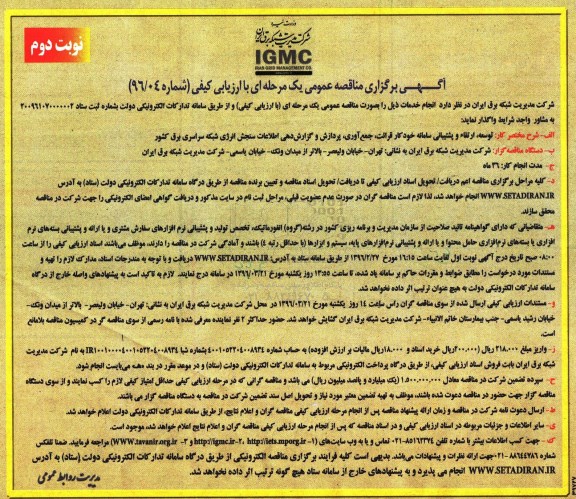 نوبت دوم
وزارت نیرو
شرکت مدیریت شبکه برق ایران
IGMC
IRAN GRID MANAGEMENT CO.
آگهی برگزاری مناقصه عمومی یک مرحله ای با ارزیابی کیفی (شماره ۹۶/۰۴)
شرکت مدیریت شبکه برق ایران در نظر دارد انجام خدمات ذیل را بصورت مناقصه عمومی یک مرحله ای (با ارزیابی کیفی) و از طریق سامانه تدارکات الکترونیکی دولت بشماره ثبت ستاد ۲۰۰۹۶۱۰۷۰۰۰۰۰۰۲
به مشاور واجد شرایط واگذار نماید:
الف- شرح مختصر کار: توسعه، ارتقاء و پشتیبانی سامانه خودکار قرائت، جمع‌آوری، پردازش و گزارش‌دهی اطلاعات سنجش انرژی شبکه سراسری برق کشور
ب- دستگاه مناقصه‌گزار: شرکت مدیریت شبکه برق ایران به نشانی: تهران- خیابان ولیعصر- بالاتر از میدان ونک- خیابان یاسمی- شرکت مدیریت شبکه برق ایران
ج- مدت انجام کار: ۳۶ ماه
د- کلیه مراحل برگزاری مناقصه اعم دریافت/ تحویل اسناد ارزیابی کیفی تا دریافت/ تحویل اسناد مناقصه و تعیین برنده مناقصه از طریق درگاه سامانه تدارکات الکترونیکی دولت (ستاد) به آدرس
WWW.SETADIRAN.IR انجام خواهد شد، لذا لازم است مناقصه گران در صورت عدم عضویت قبلی، مراحل ثبت نام در سایت مذکور و دریافت گواهی امضای الکترونیکی را جهت شرکت در مناقصه
محقق سازند.
هـ- متقاضیانی که دارای گواهینامه تائید صلاحیت از سازمان مدیریت و برنامه ریزی کشور در رشته(گروه) انفورماتیک، تخصص تولید و پشتیبانی نرم افزارهای سفارش مشتری و یا ارائه و پشتیبانی بسته‌های نرم
افزاری یا بسته‌های نرم‌افزاری حامل محتوا و یا ارائه و پشتیبانی نرم‌افزارهای پایه، سیستم و ابزارها (با حداقل رتبه ۴) باشند و آمادگی شرکت در مناقصه را دارند، موظف می‌باشند اسناد ارزیابی کیفی را از ساعت
۰۸:۰۰ صبح تاریخ درج آگهی نوبت اول لغایت ساعت ۱۶:۱۵ مورخ ۱۳۹۶/۲/۲۷ از طریق سامانه ستاد به آدرس: WWW.SETADIRAN.IR دریافت و با توجه به مندرجات اسناد، مدارک لازم را تهیه و
مستندات مورد درخواست را مطابق ضوابط و مقررات حاکم بر سامانه یاد شده، تا ساعت ۱۳:۵۵ روز یکشنبه مورخ ۱۳۹۶/۰۳/۲۱ در سامانه درج نمایند. لازم به تاکید است به پیشنهادهای واصله خارج از درگاه
سامانه تدارکات الکترونیکی دولت به هیچ عنوان ترتیب اثر داده نخواهد شد.
و- مستندات ارزیابی کیفی ارسال شده از سوی مناقصه گران راس ساعت ۱۴ روز یکشنبه مورخ ۱۳۹۶/۰۳/۲۱ در محل شرکت مدیریت شبکه برق ایران به نشانی: تهران- خیابان ولیعصر- بالاتر از میدان ونک-
خیابان رشید یاسمی- جنب بیمارستان خاتم الانبیاء- شرکت مدیریت شبکه برق ایران گشایش خواهد شد. حضور حداکثر ۲ نفر نماینده معرفی شده با نامه رسمی از سوی مناقصه گر در کمیسیون مناقصه بلامانع
است.
ز- واریز مبلغ ۲۱۸.۰۰۰ ریال (۲۰۰.۰۰۰ریال خرید اسناد و ۱۸.۰۰۰ریال مالیات بر ارزش افزوده) به حساب شماره
شرکت مدیریت
شبکه برق ایران بابت فروش اسناد ارزیابی کیفی، از طریق درگاه پرداخت الکترونیکی مربوط به سامانه تدارکات الکترونیکی دولت (ستاد) و در موعد مقرر در بند «هـ» می‌بایست انجام شود.
ح- سپرده تضمین شرکت در مناقصه معادل ۱.۵۰۰.۰۰۰.۰۰۰ (یک میلیارد و پانصد میلیون ریال) می باشد و مناقصه گرانی که در مرحله ارزیابی کیفی حداقل امتیاز کیفی لازم را کسب نمایند و از سوی دستگاه
مناقصه گزار جهت حضور در مناقصه دعوت شده باشند، موظف به تهیه تضمین معتبر مورد نیاز و تحویل اصل سند تضمین شرکت در مناقصه به دستگاه مناقصه گزار می باشند.
ط- ارسال دعوت نامه شرکت در مناقصه و زمان ارائه پیشنهاد مناقصه پس از انجام مرحله ارزیابی کیفی مناقصه گران و اعلام نتایج، از طریق سامانه تدارکات الکترونیکی دولت اعلام خواهد شد.
ی- سایر اطلاعات و جزئیات مربوطه در اسناد ارزیابی کیفی و در اسناد مناقصه که پس از انجام مرحله ارزیابی کیفی مناقصه گران و اعلام نتایج اعلام خواهد شد، موجود است.
ک- جهت کسب اطلاعات بیشتر با شماره تلفن ۸۵۱۶۲۳۷۴-۰۲۱ تماس و یا به وب سایت‌های (۱- http://iets.mporg.ir ۲- http://igmc.ir و ۳- WWW.tavanir.org.ir) مراجعه فرمایید. ضمنا تلفکس
شماره ۸۸۶۴۴۷۸۶-۰۲۱ جهت ارائه نظرات و پیشنهادات می‌باشد. بدیهی است کلیه فرآیند برگزاری مناقصه از طریق درگاه سامانه تدارکات الکترونیکی دولت (ستاد) به آدرس
WWW.SETADIRAN.IR انجام می پذیرد و به پیشنهادهای خارج از سامانه ستاد هیچ گونه ترتیب اثر داده نخواهد شد.
مدیریت روابط عمومی